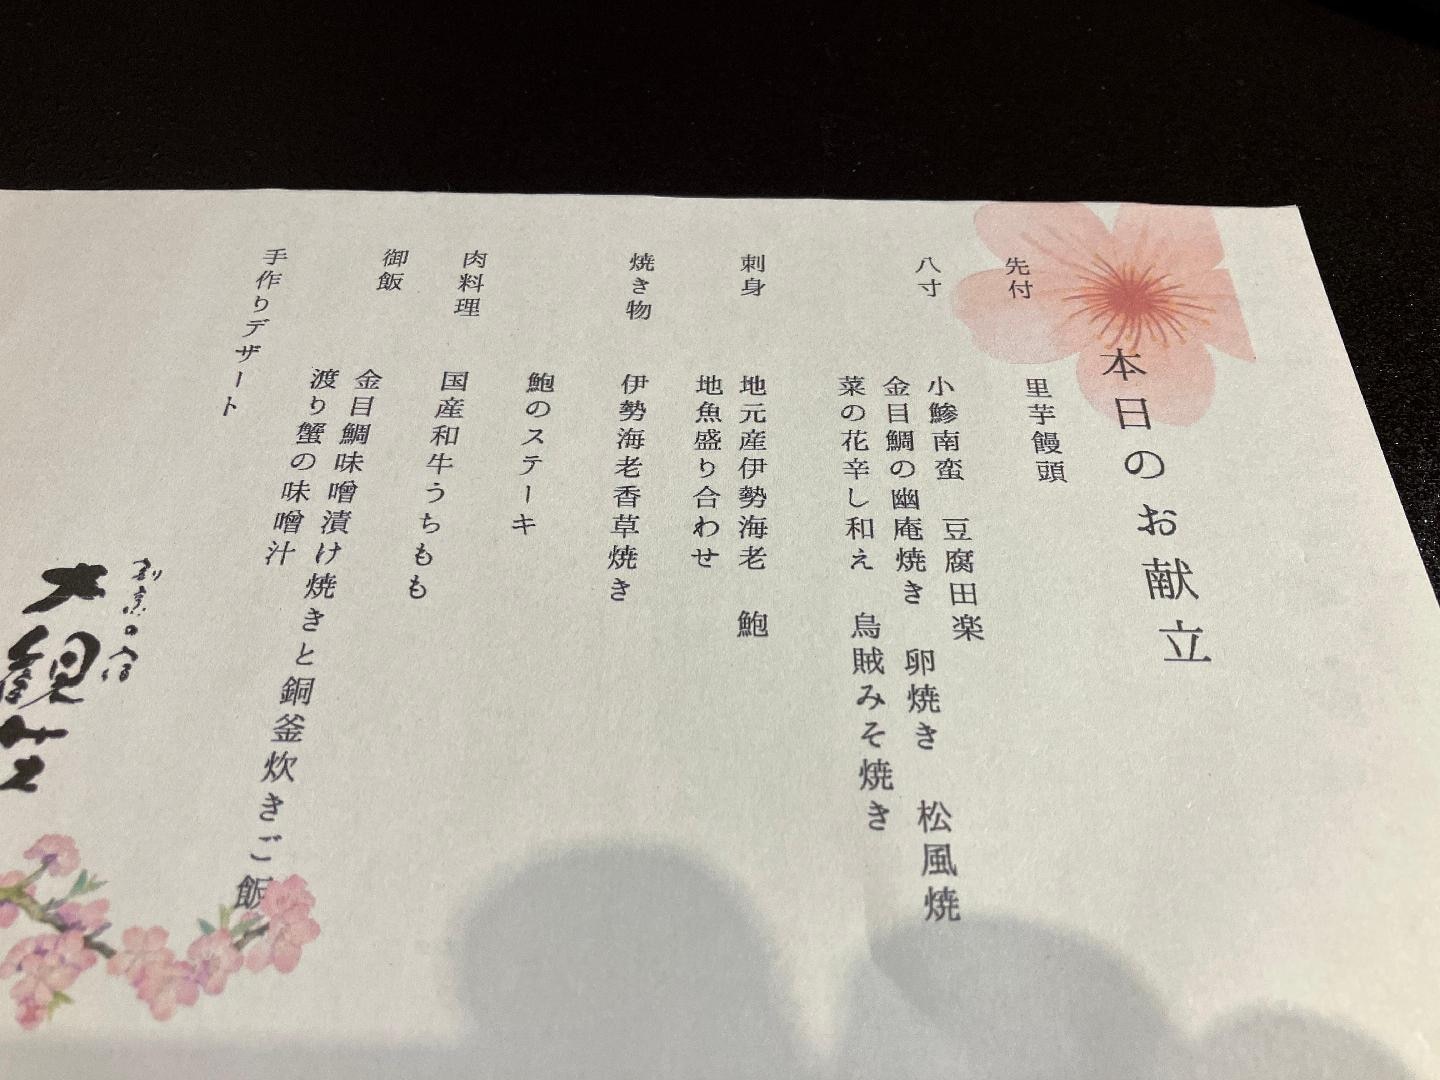 本日のお献立
先付
里芋饅頭
八寸
小鯵南蛮　豆腐田楽
金目鯛の幽庵焼き　卵焼き　松風焼
菜の花辛し和え　烏賊みそ焼き
刺身
地元産伊勢海老　鮑
地魚盛り合わせ
焼き物
伊勢海老香草焼き
鮑のステーキ
肉料理
国産和牛うちもも
御飯
金目鯛味噌漬け焼きと銅釜炊きご飯
渡り蟹の味噌汁
手作りデザート
大観荘